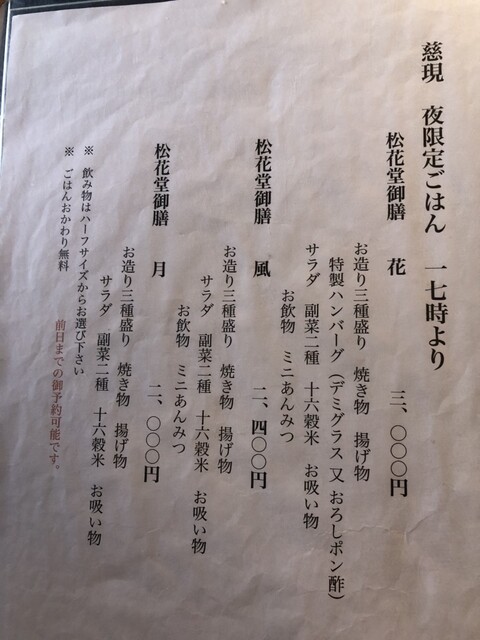 慈現　夜限定ごはん　一七時より
松花堂御膳　花　三、〇〇〇円
お造り三種盛り　焼き物　揚げ物
特製ハンバーグ（デミグラス 又 おろしポン酢）
サラダ　副菜二種　十六穀米　お吸い物
お飲物　ミニあんみつ
松花堂御膳　風　二、四〇〇円
お造り三種盛り　焼き物　揚げ物
サラダ　副菜二種　十六穀米　お吸い物
お飲物　ミニあんみつ
松花堂御膳　月　二、〇〇〇円
お造り三種盛り　焼き物　揚げ物
サラダ　副菜二種　十六穀米　お吸い物
※　飲み物はハーフサイズからお選び下さい
※　ごはんおかわり無料
前日までの御予約可能です。